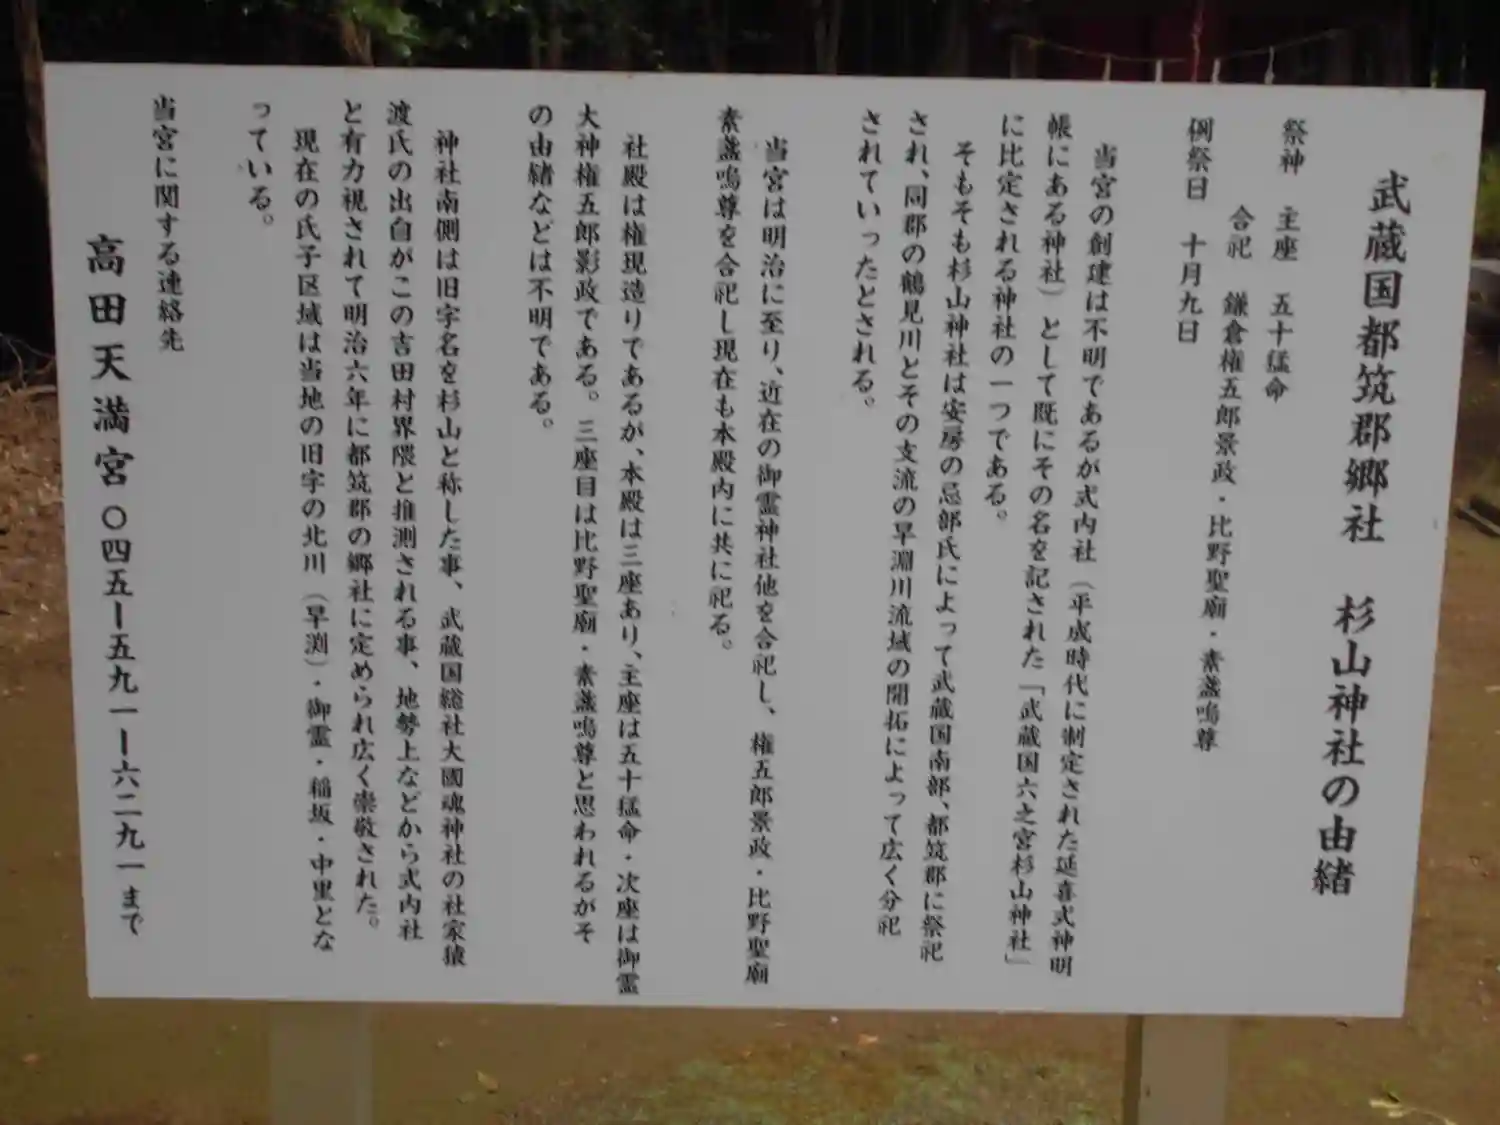 武蔵国都筑郡郷社　杉山神社の由緒
祭神　主座　五十猛命
合祀　鎌倉権五郎景政・比野聖廟・素盞嗚尊
例祭日　十月九日
当宮の創建は不明であるが式内社（平成時代に制定された延喜式神明
帳にある神社）として既にその名を記された「武蔵国六之宮杉山神社」
に比定される神社の一つである。
そもそも杉山神社は安房の忌部氏によって武蔵国南部、都筑郡に祭祀
され、同郡の鶴見川とその支流の早淵川流域の開拓によって広く分祀
されていったとされる。
当宮は明治に至り、近在の御霊神社他を合祀し、権五郎景政・比野聖廟
素盞嗚尊を合祀し現在も本殿内に共に祀る。
社殿は権現造りであるが、本殿は三座あり、主座は五十猛命・次座は御霊
大神権五郎影政である。三座目は比野聖廟・素盞嗚尊と思われるがそ
の由緒などは不明である。
神社南側は旧字名を杉山と称した事、武蔵国総社大國魂神社の社家猿
渡氏の出自がこの吉田村界隈と推測される事、地勢上などから式内社
と有力視されて明治六年に都筑郡の郷社に定められ広く崇敬された。
現在の氏子区域は当地の旧字の北川（早渕）・御霊・稲坂・中里とな
っている。
当宮に関する連絡先
高田天満宮〇四五ー五九一ー六二九一まで